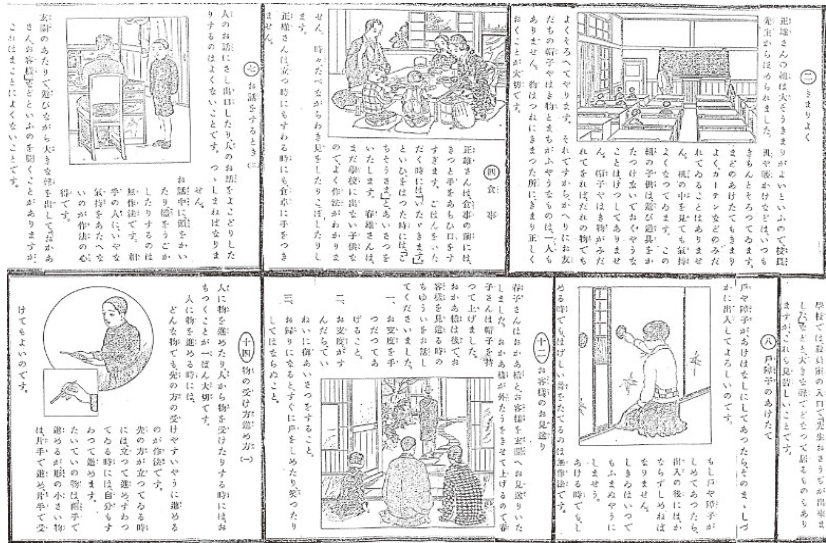 二 きまりよく
正雄さんの組は大そうきまりがよいといふので、校長
先生からほめられました。机や腰かけなどは、いつも
きちんとそろつてゐます。
まどのあけたてもきまり
よく、カーテンなどのみだ
れてゐることはありませ
ん。机の中を見ても気持
よくなつてゐます。この
組の子供は、遊び道具をか
たつけないでおくやうな
ことはけつしてありませ
ん。帽子やはき物がみだ
れてをれば、だれの物でも
よくそろへてやります。それですから、かへりにお友
だちの帽子やはき物とまちがふやうなものは一人も
ありません。物はつねにきまつた所に、きまり正しく
おくことが大切です。
四 食事
正雄さんは食事の前には、
きつと手をあらひ口をす
すぎます。ごはんをいた
だく時には「いただきます」
といひ、をはつた時には「ご
ちそうさま」とあいさつを
いたします。春雄さんは、
まだ學校に出ない子供な
ので、よく作法がわかりま
せん。時々たべながらわき見をしたり、こぼしたりし
ます。
正雄さんは立つ時にもすわる時にも食卓に手をつき
ません。
七 お話をするとき(二)
人のお話にさし出口したり、人のお話をよこどりした
りするのはよくないことです。つつしまねばなりま
せん。
お話中に頭をかい
たり、頭をうごか
したりするのは
無作法です。相
手の人にいやな
気持をあたへな
いのが作法の心
得です。
玄關のあたりで遊びながら大きな聲を出して「おかあ
さん、お客様」などといふのを聞くことがありますが、
これはまことによくないことです。
學校では、教室の入口で「先生おさうぢが出來ま
した」などと大きな聲でどなつて居るものもあり
ますが、これも見苦しいことです。
八 戸障子のあけたて
戸や障子があけはなしにしてあつたら、そのまゝしづ
かに出入してよろしいのです。
もし戸や障子が
しめてあつたら、
出入の後にはか
ならずしめねば
なりません。
しきゐはいつで
もふまぬやうに
しませう。
あける時でもし
める時でもはげしい音をたてるのは無作法です。
十二 お客様のお見送り
春子さんはおかあ様と、お客様を玄關へお見送りいた
しました。おかあ様が外たうをきせて上げるので、春
子さんは帽子を持
つて上げました。
おかあ様は後でお
客様を見送る時の
ちゆういをお話し
てくださいました。
一、お支度を手
つだつてあ
げること。
二、お支度がす
んだらてい
ねいに御あいさつをすること。
三、お歸りになると、すぐに戸をしめたり、笑つたり
してはならぬこと。
十四 物の受け方進め方(一)
人に物を進めたり、人から物を受けたりする時には、お
ちつくことが一ばん大切です。
人に物を進める時には、
どんな物でも先の方の受けやすいやうに進める
のが作法です。
先の方が立つてゐる時
には立つて進め、すわつ
てゐる時には自分もす
わつて進めます。
たいていの物は兩手で
進めるが、形の小さい物
は片手で進め、片手で受
けてもよいのです。